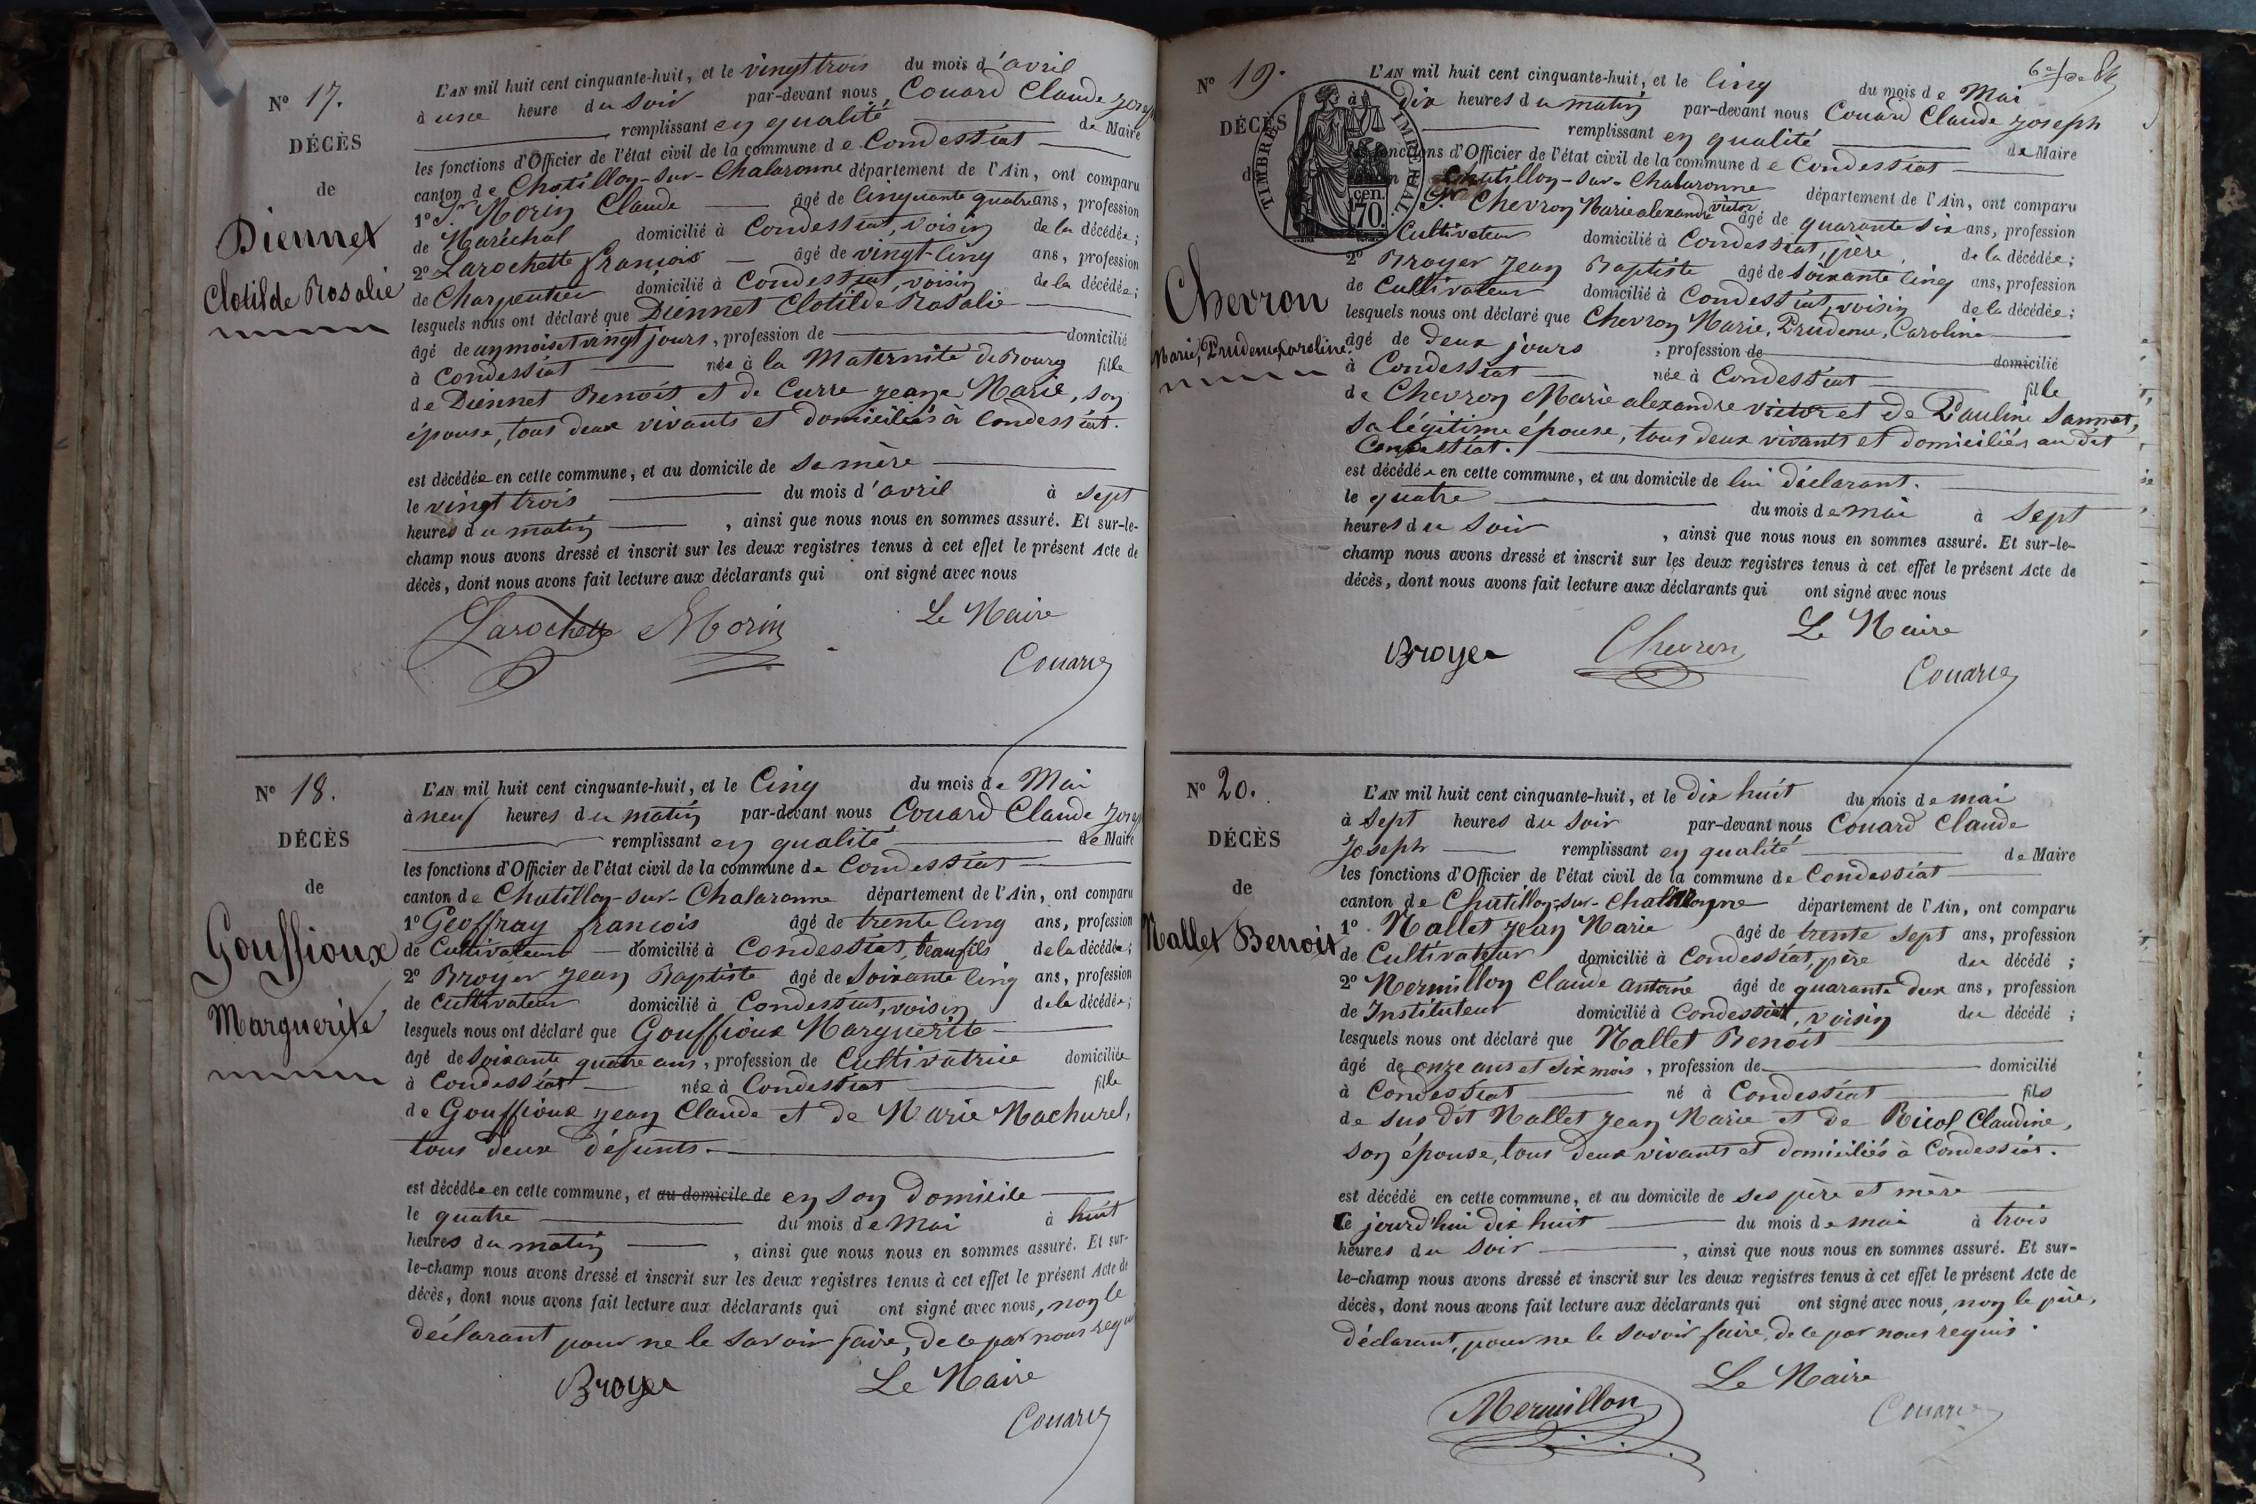 N° 17.
DÉCÈS
de
Diennet
Clotilde Rosalie
L'AN mil huit cent cinquante-huit, et le vingt trois du mois d'avril
à une heure du soir par-devant nous Couard Claude Joseph
remplissant en qualité de Maire
les fonctions d'Officier de l'état civil de la commune de Condessiat
canton de Chatillon-sur-Chalaronne département de l'Ain, ont comparu
1° Sr Morin Claude âgé de Cinquante quatre ans, profession
de Maréchal domicilié à Condessiat, voisin de la décédée;
2° Larochette françois âgé de vingt-cinq ans, profession
de Charpentier domicilié à Condessiat, voisin de la décédée;
lesquels nous ont déclaré que Diennet Clotilde Rosalie
âgé de un mois et vingt jours, profession de domicilié
à Condessiat née à la Maternité de Bourg fille
de Diennet Benoît et de Curre Jeane Marie, son
épouse, tous deux vivants et domiciliés à Condessiat.
est décédée en cette commune, et au domicile de sa mère
le vingt trois du mois d'avril à sept
heures du matin, ainsi que nous nous en sommes assuré. Et sur-le-
champ nous avons dressé et inscrit sur les deux registres tenus à cet effet le présent Acte de
décès, dont nous avons fait lecture aux déclarants qui ont signé avec nous
Larochette Morin Le Maire
Couard
N° 18.
DÉCÈS
de
Gouffioux
Marguerite
L'AN mil huit cent cinquante-huit, et le Cinq du mois de Mai
à neuf heures du matin par-devant nous Couard Claude
remplissant en qualité de Maire
les fonctions d'Officier de l'état civil de la commune de Condessiat
canton de Chatillon-sur-Chalaronne département de l'Ain, ont comparu
1° Geoffray françois âgé de trente cinq ans, profession
de Cultivateur domicilié à Condessiat, beaufils de la décédée;
2° Broyer Jean Baptiste âgé de Soixante cinq ans, profession
de Cultivateur domicilié à Condessiat, voisin de la décédée;
lesquels nous ont déclaré que Gouffioux Marguerite
âgé de Soixante quatre ans, profession de Cultivatrice domiciliée
à Condessiat née à Condessiat fille
de Gouffioux Jean Claude et de Marie Machurel,
tous deux défunts.
est décédée en cette commune, et au domicile de en son domicile
le quatre du mois de Mai à huit
heures du matin, ainsi que nous nous en sommes assuré. Et sur-
le-champ nous avons dressé et inscrit sur les deux registres tenus à cet effet le présent Acte de
décès, dont nous avons fait lecture aux déclarants qui ont signé avec nous, non le
déclarant pour ne le savoir faire, de ce par nous requis
Broyer Le Maire
Couard
N° 19.
DÉCÈS
TIMBRE IMPÉRIAL
cen.
70.
Chevron
Marie, Prudence, Caroline.
L'AN mil huit cent cinquante-huit, et le Cinq du mois de Mai
à dix heures du matin par-devant nous Couard Claude Joseph
remplissant en qualité de Maire
les fonctions d'Officier de l'état civil de la commune de Condessiat
Chatillon-sur-Chalaronne département de l'Ain, ont comparu
Sr Chevron Marie alexandre victor âgé de quarante six ans, profession
Cultivateur domicilié à Condessiat, père de la décédée;
2° Broyer Jean Baptiste âgé de Soixante cinq ans, profession
de Cultivateur domicilié à Condessiat, voisin de la décédée;
lesquels nous ont déclaré que Chevron Marie, Prudence, Caroline
âgé de deux jours, profession de domicilié
à Condessiat née à Condessiat fille
de Chevron Marie alexandre victor et de Pauline
sa légitime épouse, tous deux vivants et domiciliés au dit
Condessiat.
est décédée en cette commune, et au domicile de lui déclarant.
le quatre du mois de mai à sept
heures du soir, ainsi que nous nous en sommes assuré. Et sur-le-
champ nous avons dressé et inscrit sur les deux registres tenus à cet effet le présent Acte de
décès, dont nous avons fait lecture aux déclarants qui ont signé avec nous
Broyer Chevron Le Maire
Couard
N° 20.
DÉCÈS
de
Mallet Benoit
L'AN mil huit cent cinquante-huit, et le dix huit du mois de mai
à Sept heures du soir par-devant nous Couard Claude
Joseph remplissant en qualité de Maire
les fonctions d'Officier de l'état civil de la commune de Condessiat
canton de Chatillon-sur-Chalaronne département de l'Ain, ont comparu
1° Mallet Jean Marie âgé de trente sept ans, profession
de Cultivateur domicilié à Condessiat, père du décédé ;
2° Mermillon Claude antoine âgé de quarante deux ans, profession
de Instituteur domicilié à Condessiat, voisin du décédé ;
lesquels nous ont déclaré que Mallet Benoit
âgé de onze ans et six mois, profession de domicilié
à Condessiat né à Condessiat fils
de sus dit Mallet Jean Marie et de Ricol Claudine,
son épouse, tous deux vivants et domiciliés à Condessiat.
est décédé en cette commune, et au domicile de ses père et mère
Ce jourd'hui dix huit du mois de mai à trois
heures du soir, ainsi que nous nous en sommes assuré. Et sur-
le-champ nous avons dressé et inscrit sur les deux registres tenus à cet effet le présent Acte de
décès, dont nous avons fait lecture aux déclarants qui ont signé avec nous, non le père,
déclarant, pour ne le savoir faire, de ce par nous requis.
Mermillon Le Maire
Couard